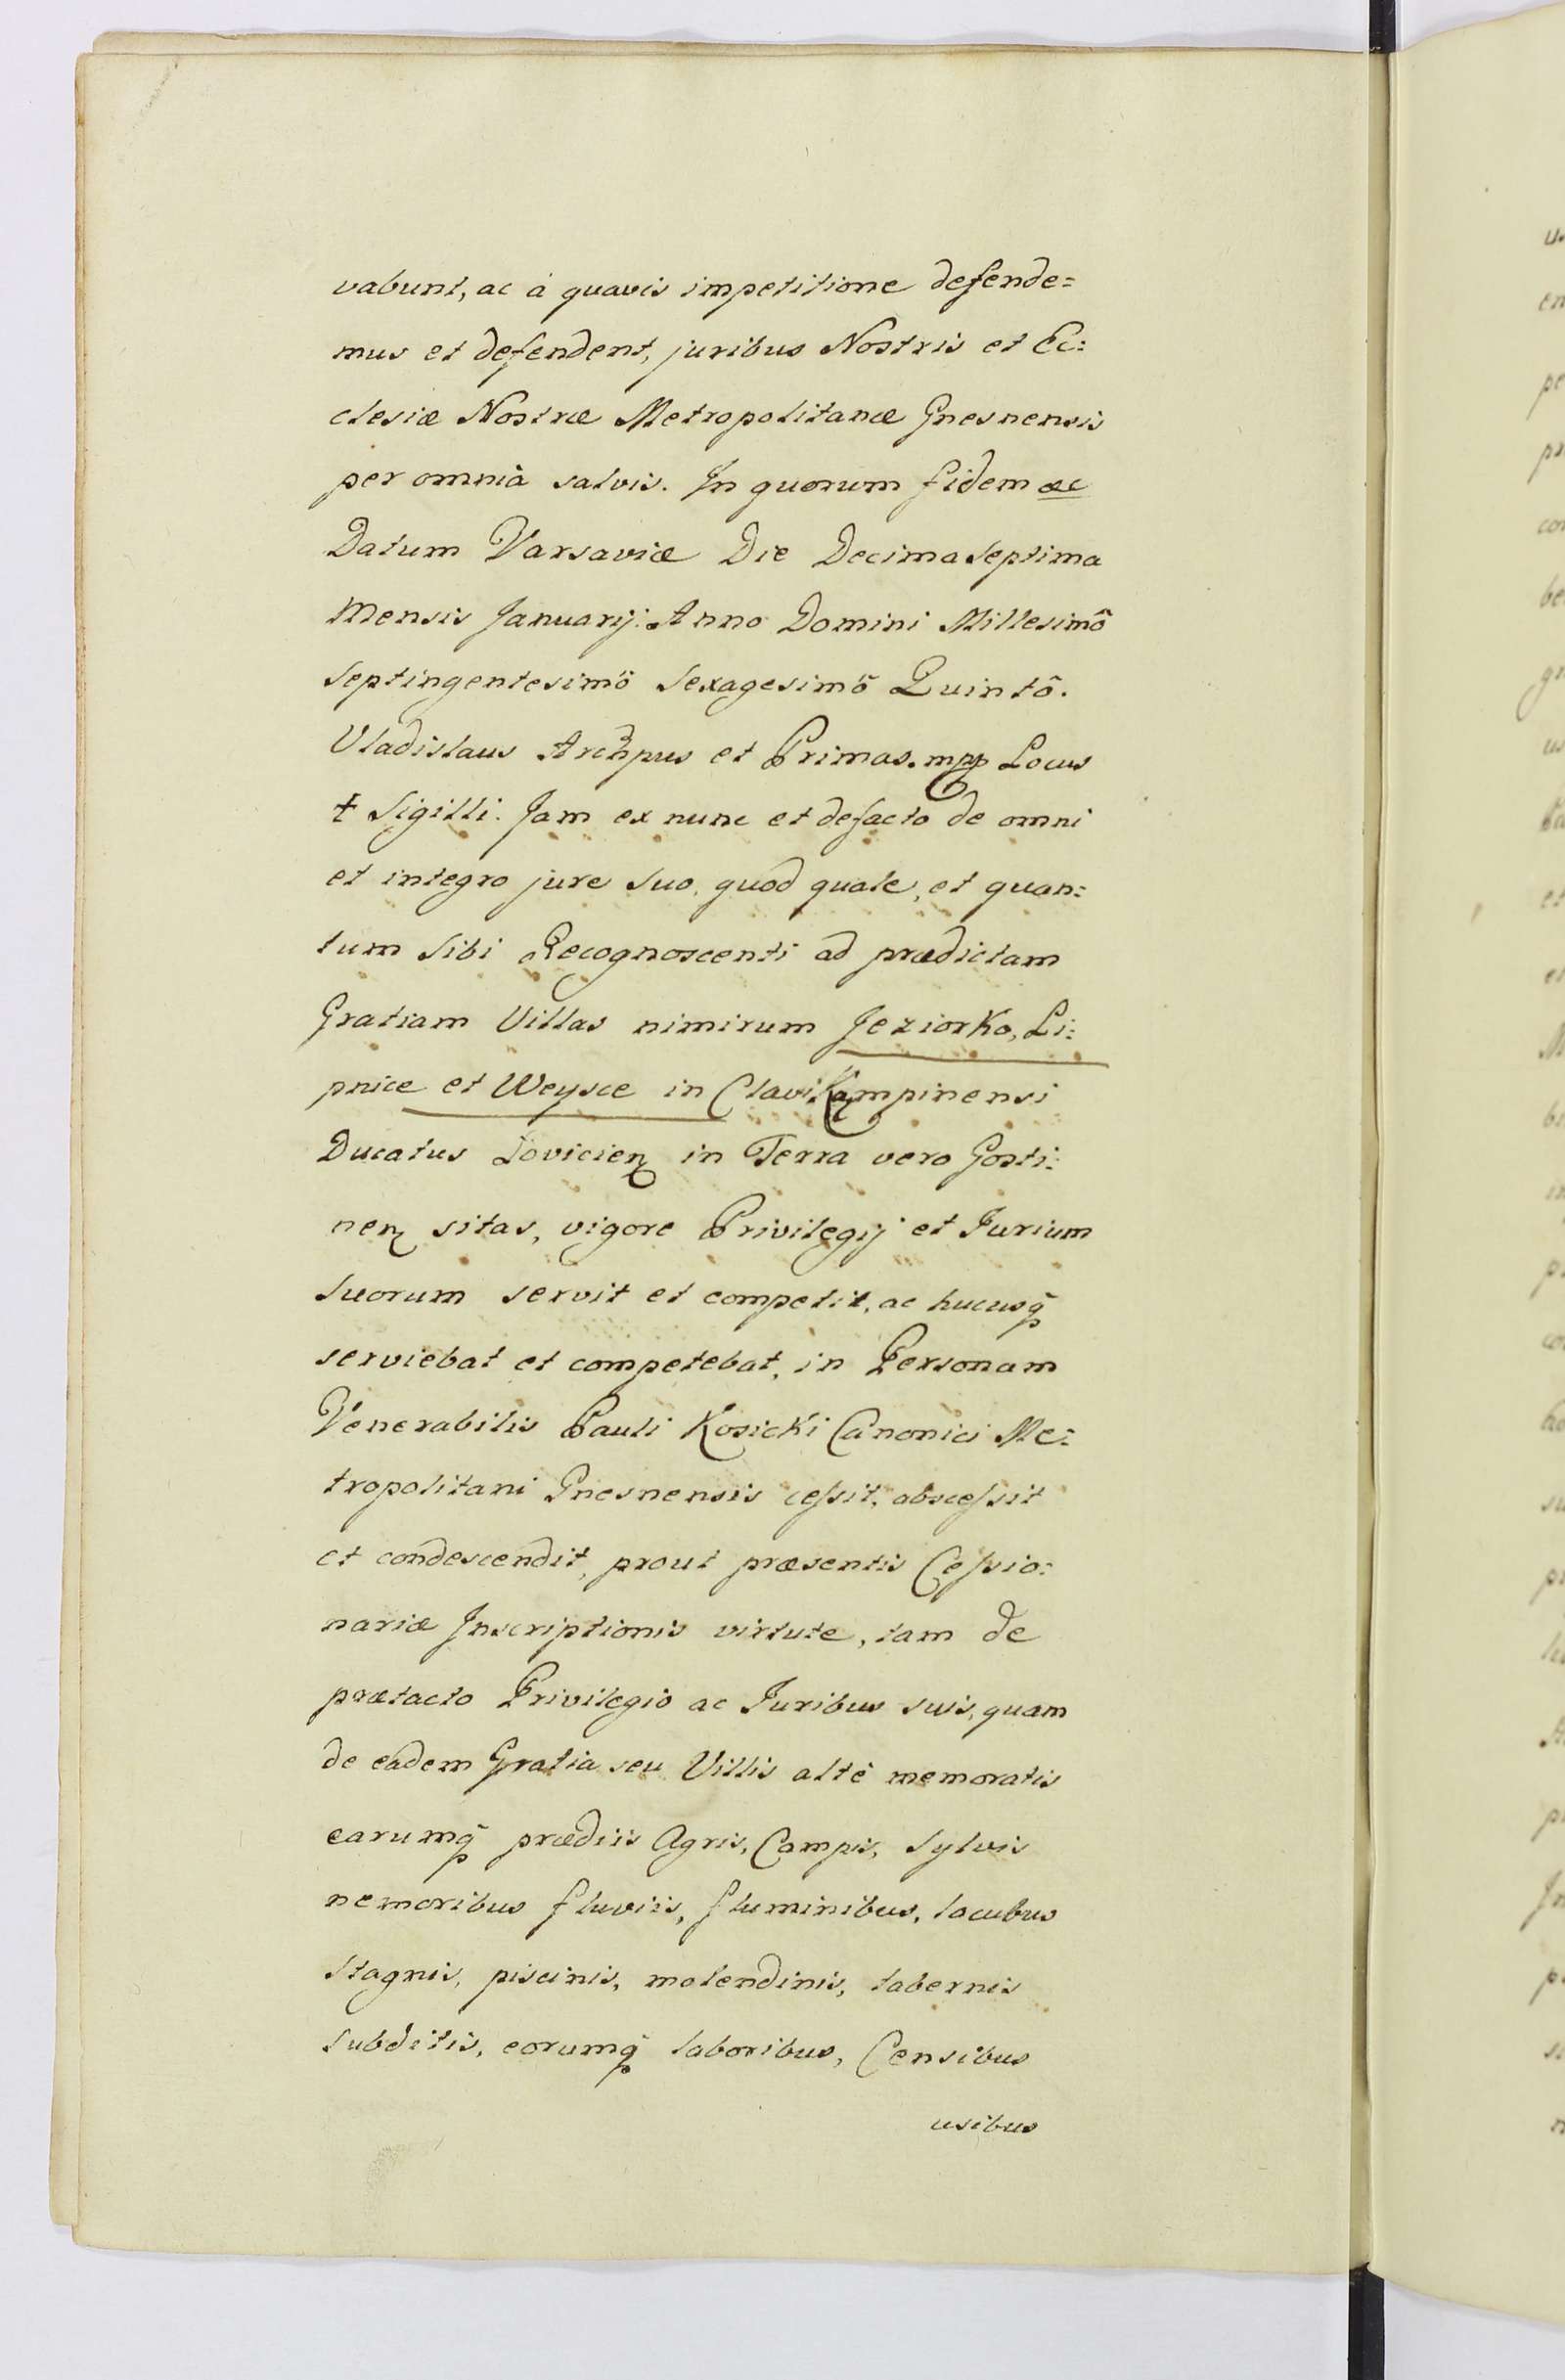 vabunt, ac à quavis impetitione defende=
mus et defendent, juribus Nostris et Ec=
clesiæ Nostræ Metropolitanæ Gnesnensis
per omnià salvis. In quorum fidem &c
Datum Varsaviæ Die Decima Septima
Mensis Januarij. Anno Domini Millesimô
Septingentesimô Sexagesimô Quintô.
Vladislaus Archpus et Primas. mpp Locus
† Sigilli. Jam ex nunc et defacto de omni
et integro jure suo, quod quale, et quan=
tum sibi Recognoscenti ad prædictam
Gratiam Villas nimirum Jeziorko, Li=
pnice et Weysce in Clavi Kampinensi
Ducatus Lovicien in Terra vero Gosti=
nen sitas, vigore Privilegij et Jurium
suorum servit et competit, ac hucusq̃
serviebat et competebat, in Personam
Venerabilis Pauli Kosicki Canonici Me=
tropolitani Gnesnensis cessit, abscessit
et condescendit, prout præsentis Cessio=
nariæ Inscriptionis virtute, tam de
prætacto Privilegio ac Juribus suis, quam
de eadem Gratia seu Villis altè memoratis
earumq̃ prædiis Agris, Campis, Sylvis
nemoribus fluviis, fluminibus, lacubus
stagnis, piscinis, molendinis, tabernis
subditis, eorumq̃ laboribus, Censibus
usibus